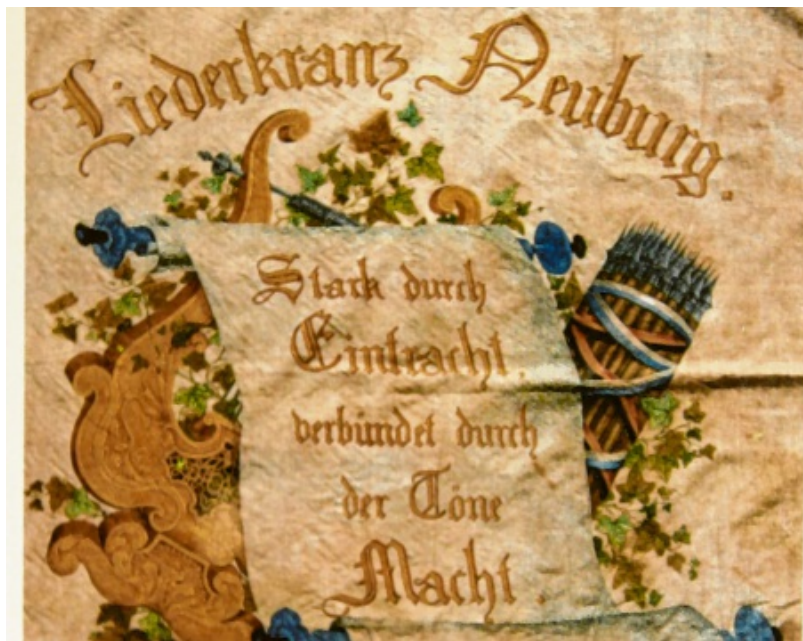 Liederkranz Neuburg.
Stark durch
Eintracht,
verbündet durch
der Töne
Macht.